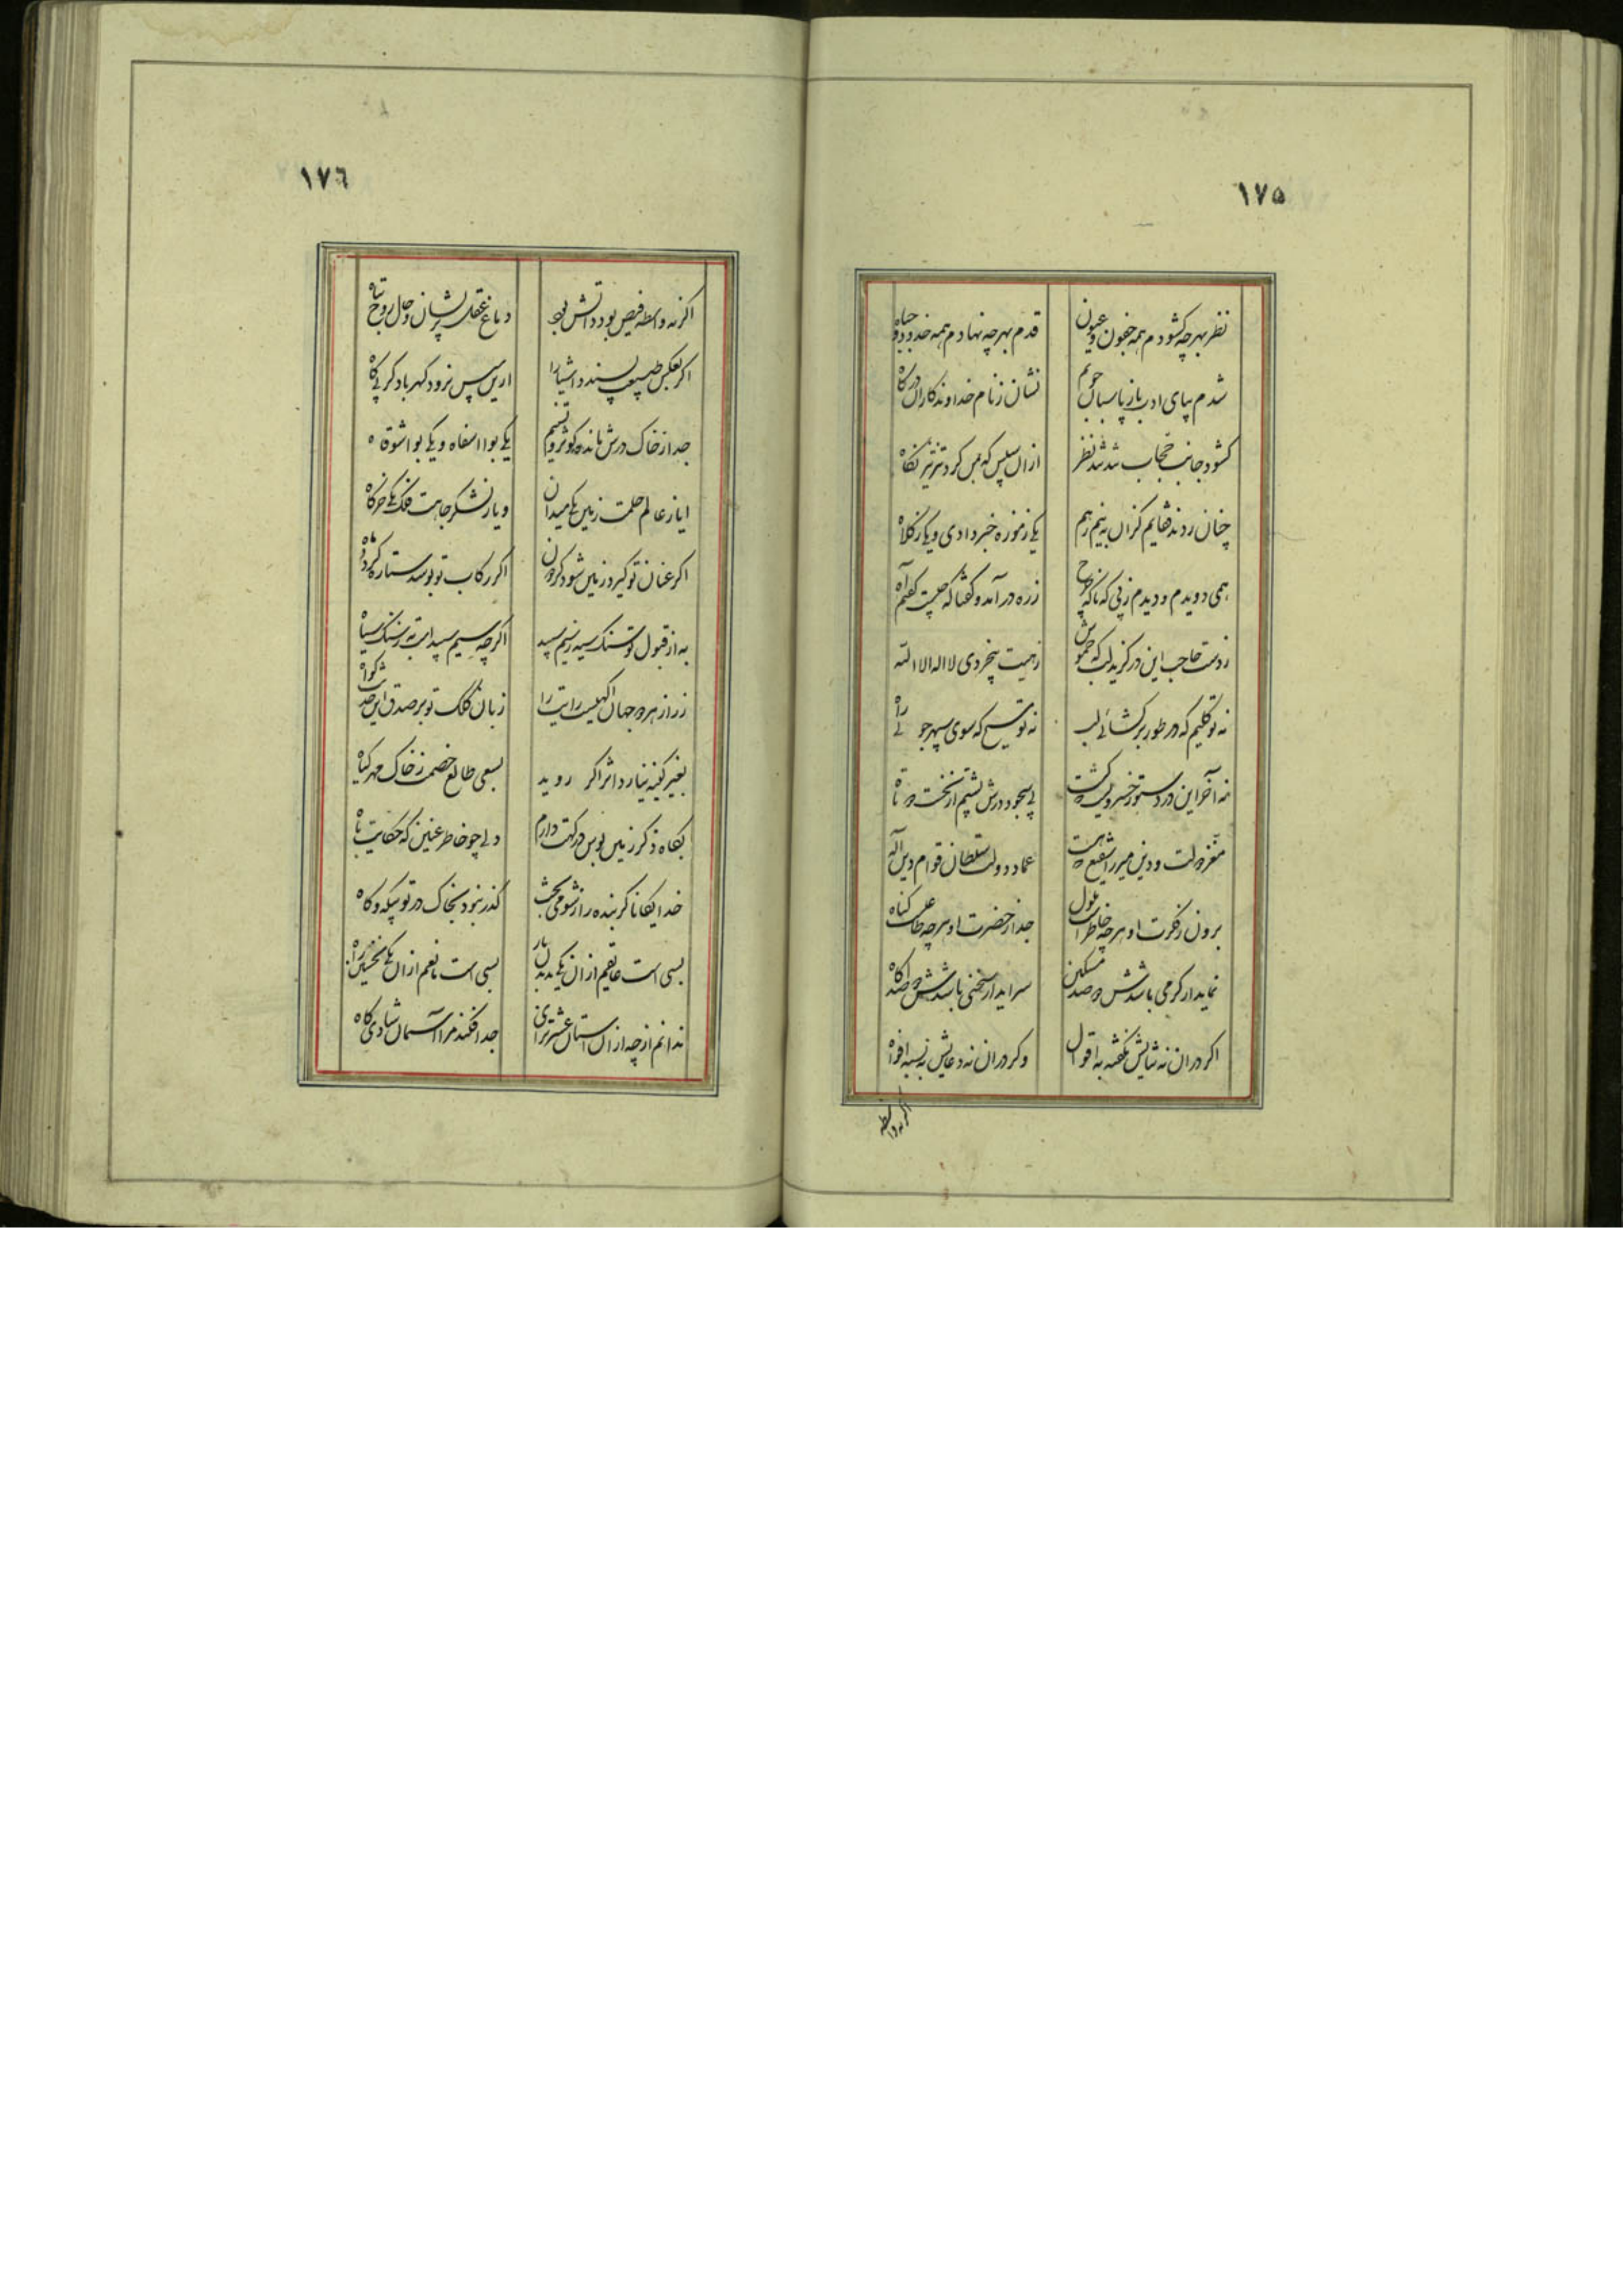 ١٧۵
نظر بهر چه کشودم همه جفون و عیون
قدم بهر چه نهادم همه خدود و جباه
شدم بپای ادب باز پاسبان حویم
نشان ز نام خداوندکار آن درکاه
کشود جانب حجاب شد نظر
از آن سپس که بمن کرد تیز تیز نکاه
چنان ردند قفایم کزان به بیم رهم
یکی ز موزه خبر دادی و یکی ز کلاه
همی دویدم و دیدم ز پی که ناکه چرخ
ز ره در آمد و کفتا که چیست کفتم آه
ز دست حاجب این در کزید لب که خموش
زهیت بیخردی لا اله الا الله
نه تو کلیم که در طور بر کشائی لب
نه تو مسیح که سوی سپهر جوئی راه
نه آخر این در دستور خسرو یست که هست
پی سجود درش پشتم از نخست دو تاه
مغز دولت و دین میر راشفیع که هست
عماد دولت سلطان قوام دین اله
برون ز فکرت او هر چه خاطر است ملول
جز از حضرت او هر چه طاعت کناه
نماید ار کرمی باشدش دو صد مسکین
سراید ار سخنی باشدش دو صد اکاه
اکر در آن نه ثنایش نکفته به اقوال
و کر در آن نه دعایش نه بسته افواه
اکر نه واسطه
١٧٦
اکر نه واسطه فیض بود ذاتش بود
دماغ عقل پریشان و حال روح تباه
اکر بعکس طبیعت پسندد اشیا را
ازین سپس نرود کهربا دکر پی کاه
جدا ز خاک درش مانده کوثر و تسنیم
یکی بوا اسفاه و یکی بوا شوقاه
ایا ز عالم حلمت زمین یکی میدان
و یا ز لشکر جاهت فلک یکی خرکاه
اکر عنان تو کیرد زمین شود کردون
اکر رکاب تو بوسد ستاره کردد ماه
به از قبول تو سنک سیه ز سیم سپید
اکر چه سیم سپید است به ز سنک سیاه
زبان کلک تو بر صدق این حدیث کواه
بغیر کینه نیارد اثر اکر روید
بسعی طالع خصمت ز خاک مهر کیاه
بکاه ذکر زمین بوس درکهت دارم
دلی چو خاطر عنین که حکایت باه
خدایکانا کر بنده را ز شومی بخت
کذر نبود بخاک در تو بیکه و کاه
بسی است عایقم از آن یکی
بسی است مانعم از آن یکی نخستین راه
ندانم از چه از آن آستان عشرت زای
جدا فکند مرا آسمان شادی کاه